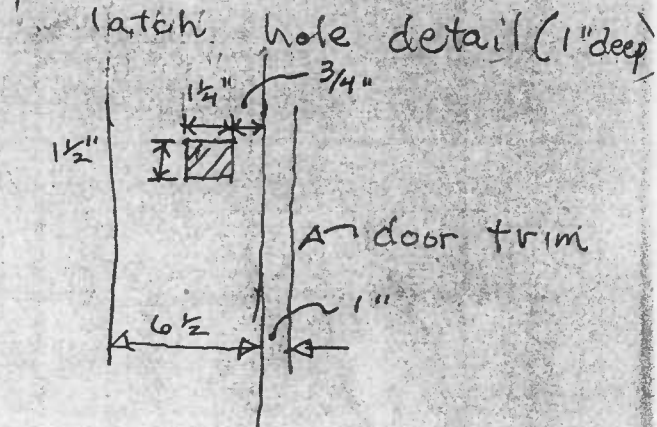 latch hole detail (1" deep)
3/4"
1 1/4"
1 1/2"
door trim
1"
6 1/2